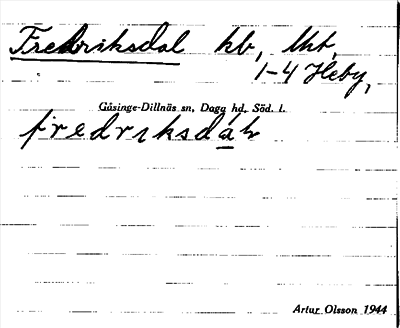 Fredriksdal hb, Mt,
1-4 Heby,
Gåsinge-Dillnäs sn, Daga hd, Söd. l.
fredriksda̲l
Artur Olsson 1944